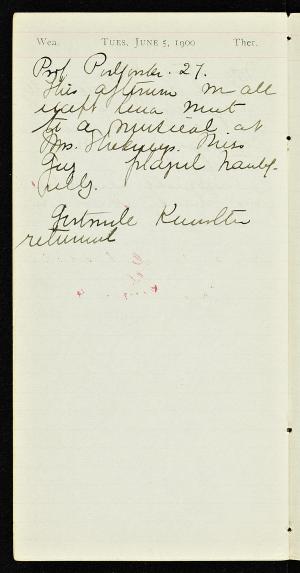 Wea. TUES. JUNE 5, 1900 Ther.
Prof 27.
This afternoon we all
except Lena went
to a musical at
Mrs. Miss
Guy played
Gertrude
returned